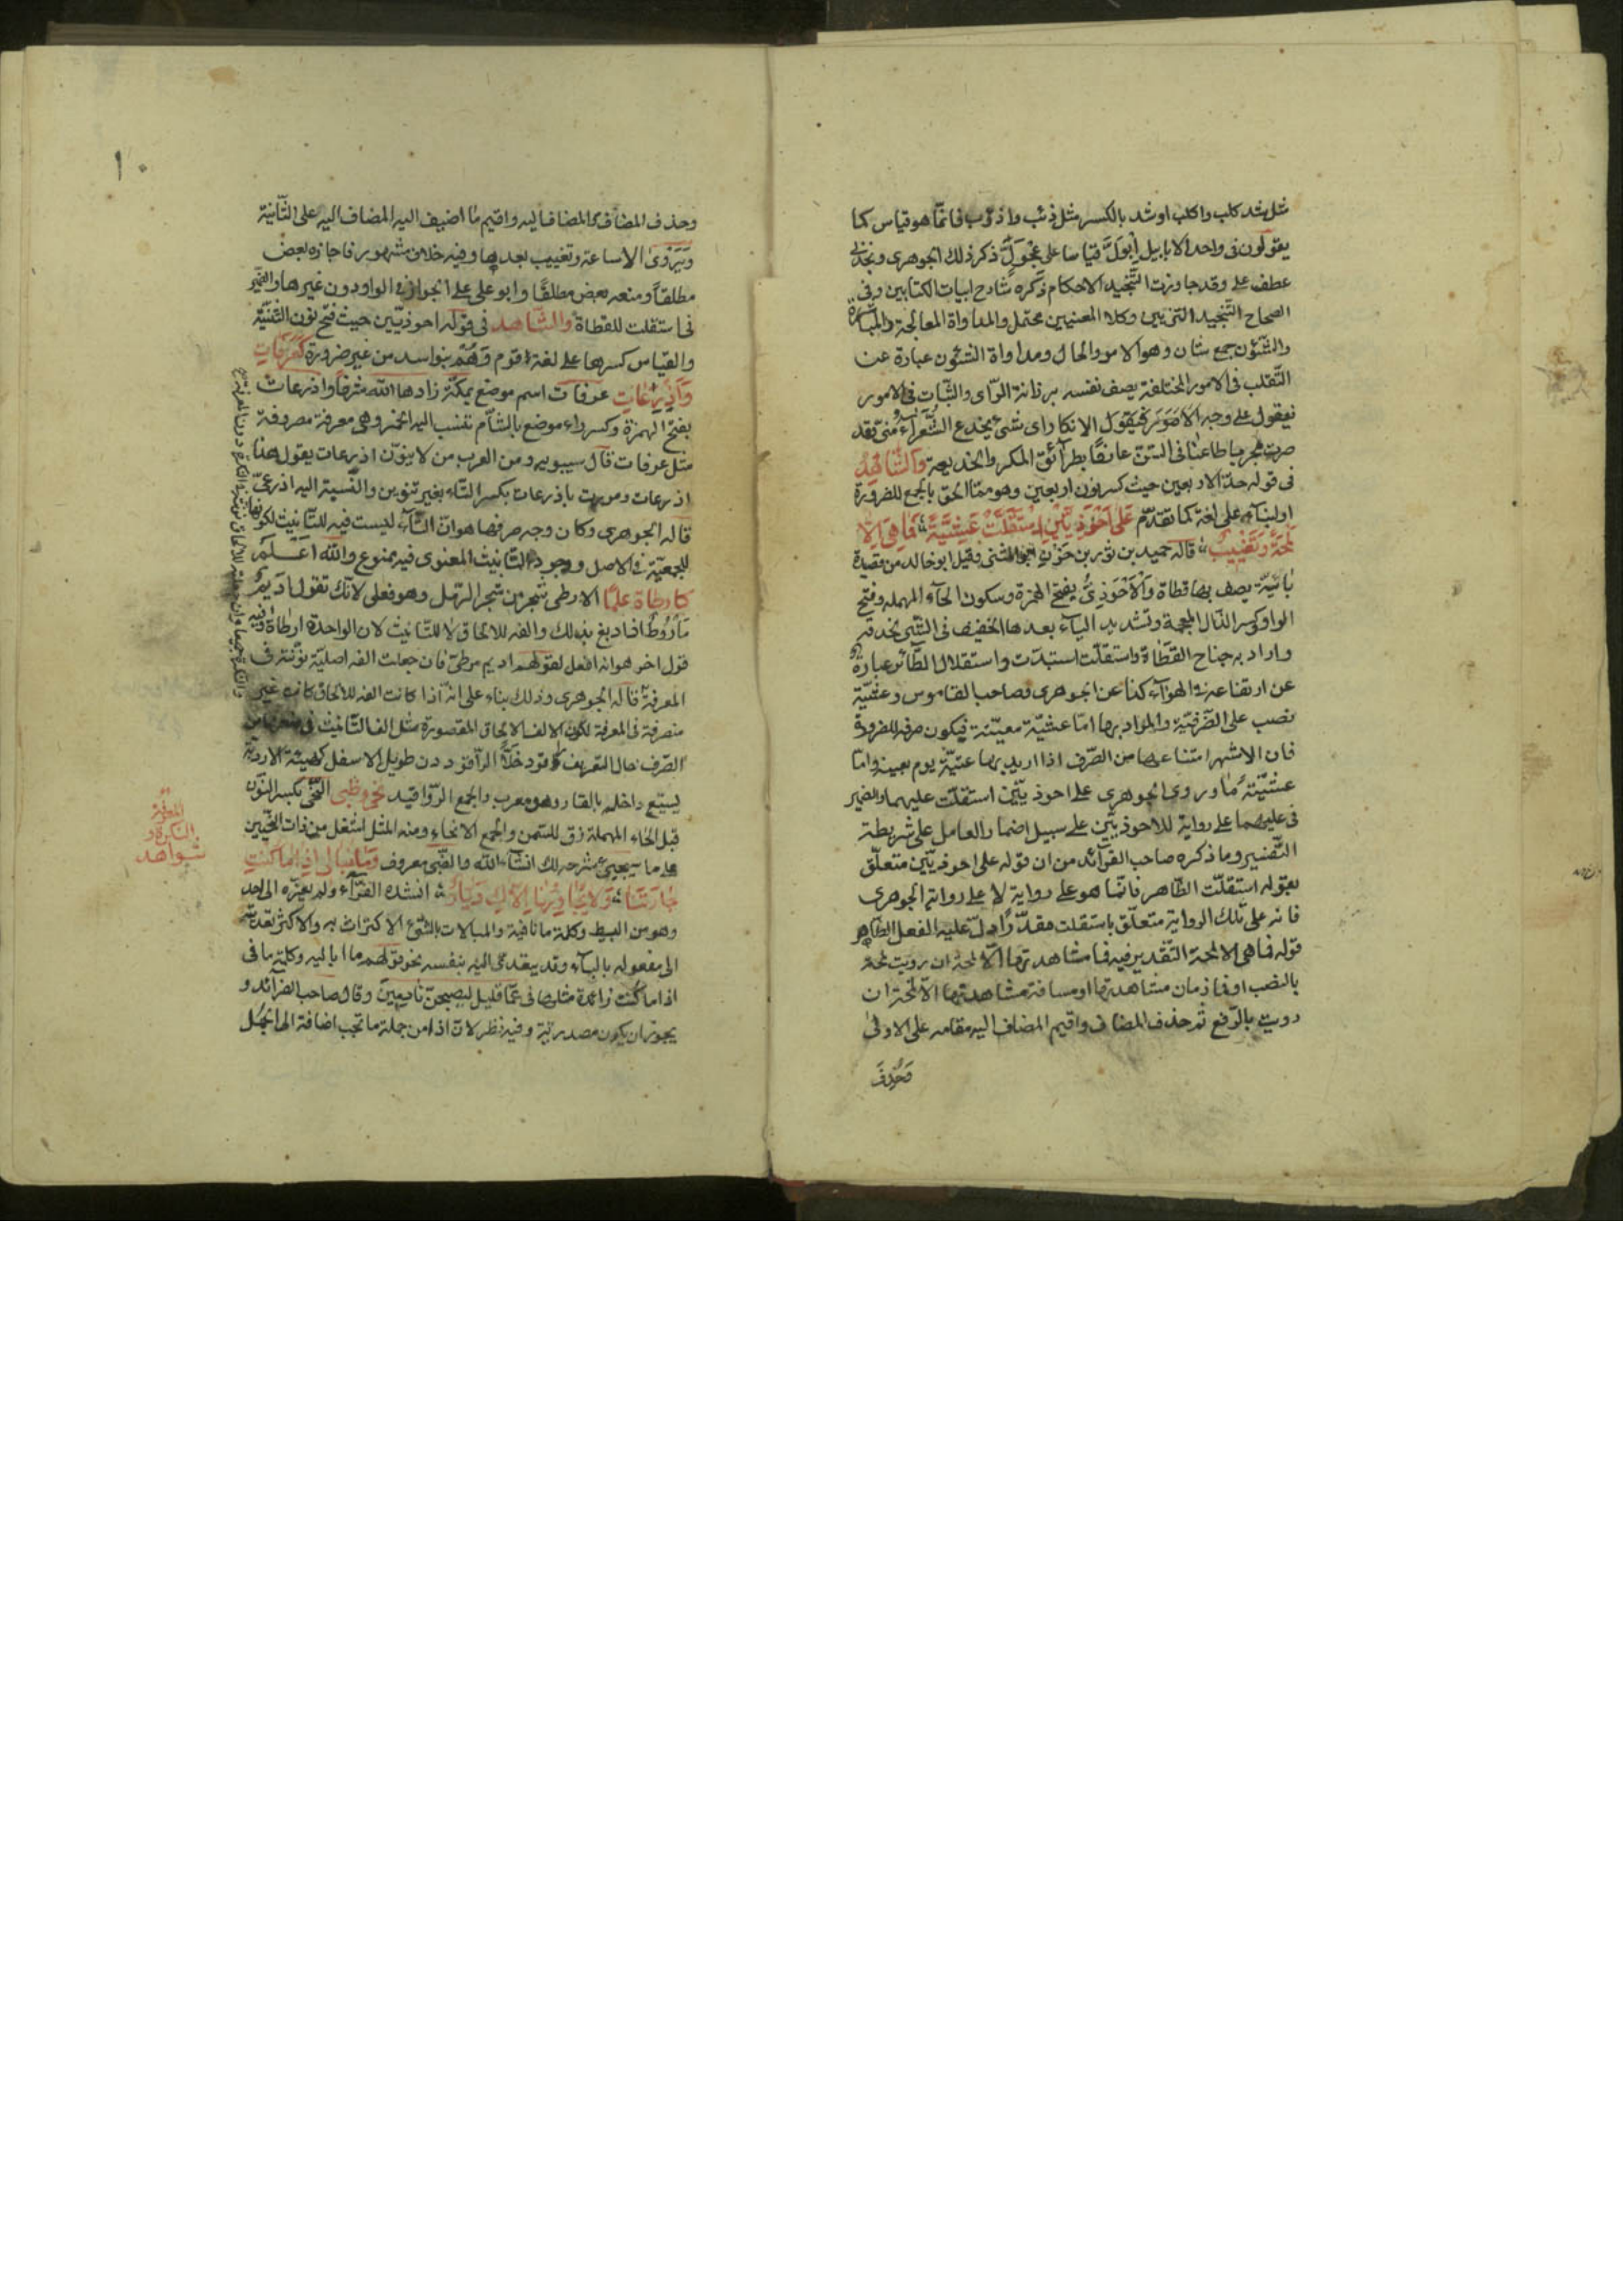 مثل شد كلب واكلب او شد بالكسر مثل ذئب واذؤب فانما هو قياس كما
يقولون في واحد الابابيل اِبَّوْل قياسا على عجّول ذكر ذلك الجوهرى ونجذني
عطف على وقد جاوزت التنجيد الاحكام ذكره شارح ابيات الكتابين وفى
الصحاح التنجيد التزيين وكلا المعنيين محتمل والمداواة المعالجة والمباشرة
والشئون جمع شان وهو الامر والحال ومداواة الشئون عبارة عن
التقلب فى الامور المختلفة يصف نفسه برزانة الراى والثبات فى الامور
فيقول على وجه الانكار اى شئ يخدع الشعراء منى وقد
صرت مجربا طاعنا فى السن عارفًا بطرائق المكر والخديعة والشاهد
فى قوله حد الاربعين حيث كسر نون اربعين وهو مما الحق بالجمع للضرورة
او لبناء على لغة كما تقدم عَلَى اَحْوَذِيَّيْنِ اسْتَقَلَّتْ عَشِيَّةً فَمَا هِىَ اِلَّا
لَمْحَةٌ وَتَغِيْبُ قاله حميد بن ثور بن حَزْن ابو المثنى وقيل ابو خالد من قصيدة
بائية يصف بها قطاة وَالْاَحْوَذِىُّ بفتح الهمزة وسكون الحاء المهملة وفتح
الواو وكسر الذال المعجمة وتشديد الياء بعدها الخفيف فى الشئ لحذقه
واراد به جناح القطاة واستقلت استبدت واستقلال الطائر عبارة
عن ارتفاعه فى الهواء كذا عن الجوهرى وصاحب القاموس وعشية
نصب على الظرفية والمراد بها اما عشية معينة فيكون صرفه للضرورة
فان الاشهر امتناعها من الصرف اذا اريد بها عشية يوم بعينه واما
عشيّةٌ مّا وروى الجوهرى على احوذيين استقلت عليهما والضمير
فى عليهما على رواية للاحوذيين على سبيل اضمار العامل على شريطة
التفسير وما ذكره صاحب الفرائد من ان قوله على احوذيين متعلق
بقوله استقلت الظاهر فانما هو على رواية لا على رواية الجوهرى
فانه على تلك الرواية متعلق باستقلت مقدرًا دل عليه الفعل الظاهر
قوله فما هى الا لمحة التقدير فيه فما مشاهدتها الا لمحة ان رويت لمحة
بالنصب او فما زمان مشاهدتها او مسافة مشاهدتها الا لمحة ان
رويت بالرفع ثم حذف المضاف واقيم المضاف اليه مقامه على الاولى
وَحُذِفَ
١٠
وحذف المضاف والمضاف اليه واقيم ما اضيف اليه المضاف اليه على الثانية
وَيُرْوَى الا ساعة وتغيب بعدها وفيه خلاف مشهور فاجازه بعض
مطلقا ومنعه بعض مطلقًا وابو على على الجواز فى الواو دون غيرها والضمير
فى استقلت للقطاة والشاهد فى قوله احوذيين حيث فتح نون التثنية
والقياس كسرها على لغة قوم وَهُمْ بنو اسد من غير ضرورة كَعَرَفَاتٍ
وَاَذْرِعَاتٍ عرفات اسم موضع بمكة زادها الله شرفًا واذرعات
بفتح الهمزة وكسر راء موضع بالشام تنسب اليه الخمر وهى معرفة مصروفة
مثل عرفات قال سيبويه ومن العرب من لا ينون اذرعات يقول هذا
اذرعات ومررت باذرعات بكسر التاء بغير تنوين والنسبة اليه اذرعىّ
قاله الجوهرى وكان وجه صرفها هو ان التاء ليست فيه للتانيث لكونها
للجمعية فى الاصل ووجود التانيث المعنوى فيه ممنوع والله اعلم
كارطاة علمًا الارطى شجر من شجر الرمل وهو فعلى لانك تقول اديم
مأروط اذا دبغ بذلك والفه للالحاق لا للتانيث لان الواحدة ارطاة وفيه
قول اخر هو انه افعل لقولهم اديم مرطىّ فان جعلت الفه اصلية نونته فى
المعرفة قاله الجوهرى وذلك بناء على انه اذا كانت الفه للالحاق كانت غير
منصرفة فى المعرفة لكون الالف الالحاق المقصورة مثل الف التانيث فى
الصرف حال التعريف كراقود خلًّا الراقود دن طويل الاسفل كهيئة الاردبة
يسيع داخله بالقار وهو معرب والجمع الرواقيد نحى وظبى النحى بكسر النون
قبل الحاء المهملة زق للسمن والجمع الانحاء ومنه المثل اشغل من ذات النحيين
على ما سيجيئ شرحه لك انشاء الله والظبى معروف وَمَا نُبَالِى اِذَا مَا كُنْتِ
جَارَتَنَا وَلَا يُجَاوِرُنَا اِلَّاكِ دَيَّارُ انشده الفراء ولم يعزه الى احد
وهو من البسيط وكلمة ما نافية والمبالات بالشئ الاكتراث به والاكثر تعديته
الى مفعوله بالباء وقد يتعدى اليه بنفسه نحو قولهم ما اباليه وكلمة ما فى
اذا ما كنت زائدة مثلها فى عمّا قليل ليصبحنّ نادمين وقال صاحب الفرائد و
يجوز ان يكون مصدرية وفيه نظر لان اذا من جملة ما تجب اضافة الى الجمل
المعرفة
والنكرة و
شواهد